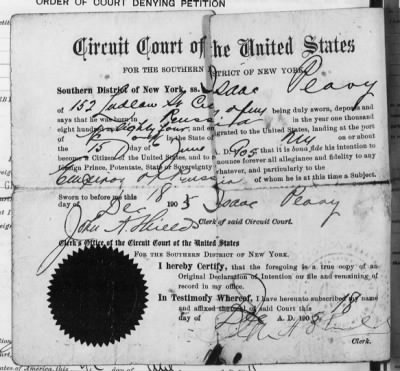 ORDER OF COURT DENYING PETITION
Circuit Court of the United States
FOR THE SOUTHERN DISTRICT OF NEW YORK.
Southern District of New York, ss. Isaac Peavy
of 152 Ludlow St City of NY being duly sworn, deposes and
says that he was born in Russia in the year one thousand
eight hundred eighty four, and emigrated to the United States, landing at the port
of in the State of NY on or about
the 15 Day of June A. D. 1905 that it is bona fide his intention to
become a Citizen of the United States, and to renounce forever all allegiance and fidelity to any
foreign Prince, Potentate, State or Sovereignty whatever, and particularly to the
of Russia of whom he is at this time a Subject.
Sworn to before me this 18
day of Dec 1905 Isaac Peavy
John A. Shields Clerk of said Circuit Court.
Clerk's Office of the Circuit Court of the United States
FOR THE SOUTHERN DISTRICT OF NEW YORK.
I hereby Certify, that the foregoing is a true copy of an
Original Declaration of Intention on file and remaining of
record in my office.
In Testimony Whereof, I have hereunto subscribed my name
and affixed the seal of said Court this 18
day of Dec A. D. 1905
Clerk.
States of America, this day of